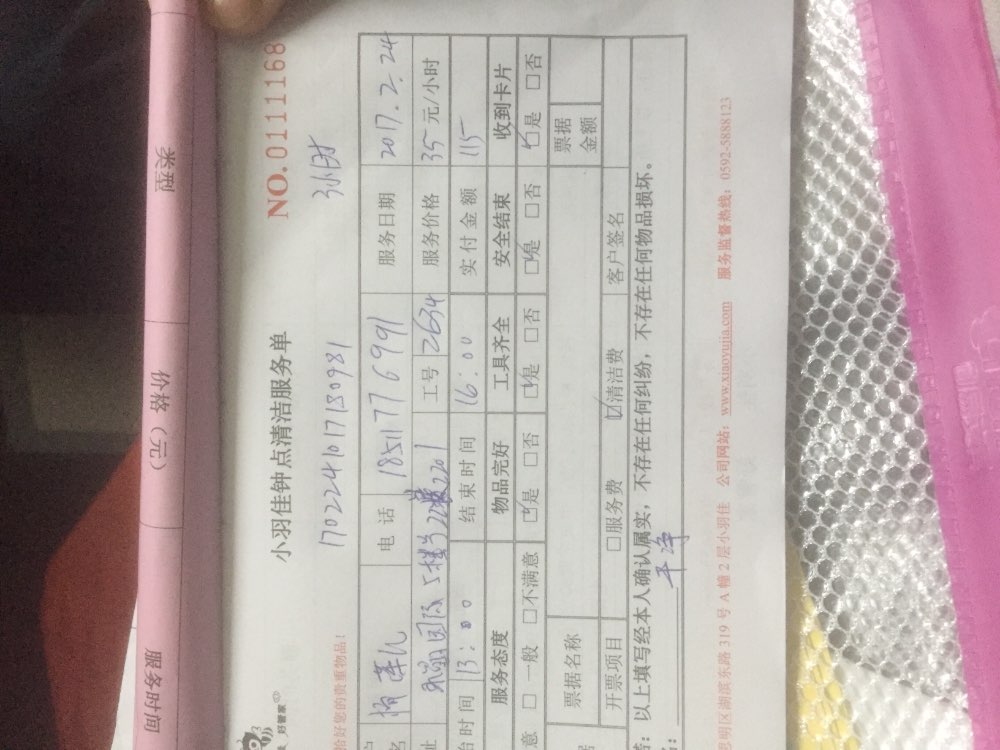 类型
价格（元）
服务时间
好管家
小羽佳钟点清洁服务单
NO.0111168
170224101718 0981
恰好您的贵重物品！
电话 18511776991 服务日期 2017.2.24
2201 工号 2634 服务价格 35元/小时
台时间 13:00 结束时间 16:00 实付金额 115
服务态度 物品完好 工具齐全 安全结束 收到卡片
意 □一般 □不满意 ☑是 □否 ☑是 □否 ☑是 □否 ☑是 □否
票据名称 票据金额
开票项目 □服务费 ☑清洁费 客户签名
：以上填写经本人确认属实，不存在任何纠纷，不存在任何物品损坏。
：干净
思明区湖滨东路319号A幢2层小羽佳 公司网站：www.xiaoyujia.com 服务监督热线：0592-5888123